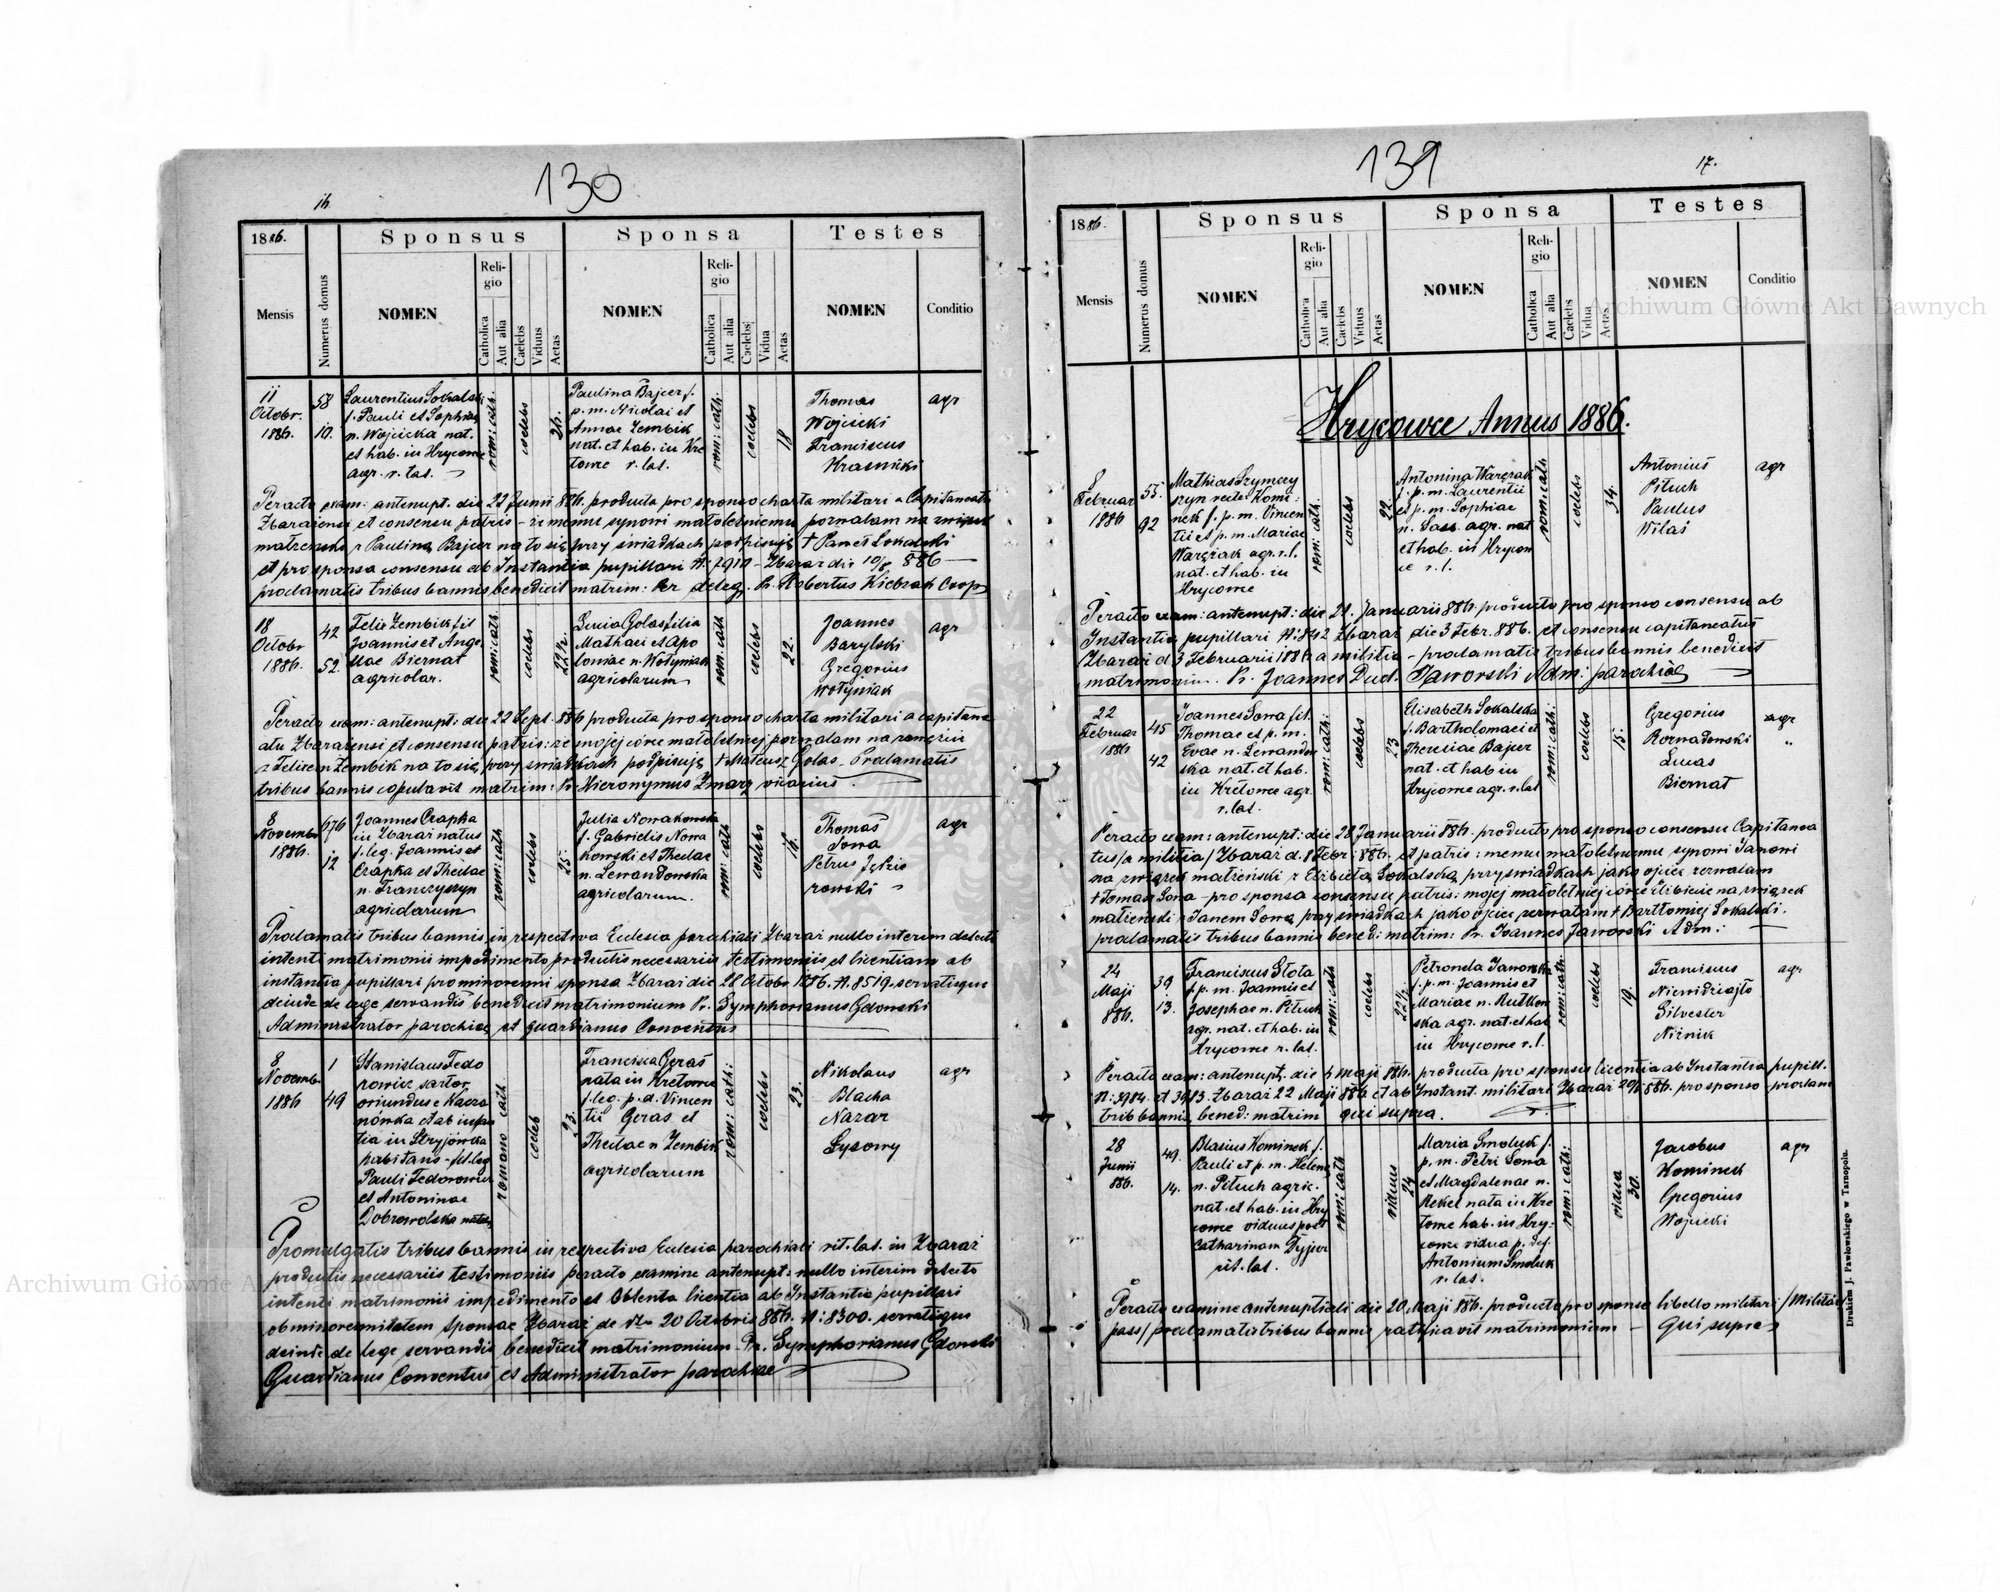 130
16.
1886.
Sponsus
Sponsa
Testes
Mensis
Numerus domus
NOMEN
Religio
Catholica
Aut alia
Caelebs
Viduus
Aetas
NOMEN
Religio
Catholica
Aut alia
Caelebs
Vidua
Aetas
NOMEN
Conditio
11
Octobr.
1886.
58
10.
Laurentius Sokalski
f. Pauli et Sophiae
n. Wojcicka nat.
et hab. in Hrycowce
agr. r. lat.
rom: cath.
coelebs
Paulina Bajcer f.
p. m. Nicolai et
Annae Zembik
nat. et hab. in Kre
towce r. lat.
rom: cath.
coelebs
18
Thomas
Wojcicki
Franciscus
Krasnicki
agr
Peracto exam: antenupt. die 22 Junii 886. producta pro sponso charta militari a Capitaneatu
Zbarazensi et consensu patris - że memu synowi małoletniemu pozwalam na związek
małżeński z Pauliną Bajcer na to się przy świadkach podpisuję † Paweł Sokalski
et pro sponsa consensu ab Instantia pupillari N: 7910 - Zbaraż die 10/8 886
proclamatis tribus bannis benedicit matrim: Per deleg. Pr. Robertus Kiebzak Coop
18
Octobr
1886.
42
52.
Felix Zembik fil
Joannis et Ange
lae Biernat
agricolar.
rom: cath.
coelebs
22 1/2.
Lucia Golas filia
Mathaei et Apo
loniae n. Wołyniak
agricolarum
rom: cath
coelebs
22.
Joannes
Barylski
Gregorius
Wołyniak
agr
Peracto exam: antenupt: die 22 Sept. 886 producta pro sponso charta militari a capitane
atu Zbarazensi et consensu patris: że mojej córce małoletniej pozwalam na zamęście
z Felixem Zembik na to się przy świadkach podpisuję † Mateusz Golas - Proclamatis
tribus bannis copulavit matrim: Pr. Hieronymus Zmarz vicarius.
8
Novembr
1886.
676
12
Joannes Czapka
in Zbaraż natus
f. leg. Joannis et
Czapka et Theclae
n. Franczyszyn
agricolarum
rom: cath
coelebs
25.
Julia Nowakowska
f. Gabrielis Nowa
kowski et Theclae
n. Lewandowska
agricolarum.
rom: cath
coelebs
Thomas
Sowa
Petrus Jędrze
rowski
agr
Proclamatis tribus bannis in respectiva Eclesia parochiali Zbaraż nullo interim detecto
intenti matrimonii impedimento productis necessariis testimoniis et licentiam ab
instantia pupillari pro minorenni sponsa Zbaraż die 28 Octobr 1886. N. 8519. servatisque
deinde de lege servandis benedicit matrimonium Pr. Symphorianus Gdowski
Administrator parochiae et guardianus Conventus
8
Novemb.
1886
1
49
Stanislaus Fedo
rowicz sartor
oriundus e Kacza
nówka et ab infan
tia in Stryjówka
habitans - fil. leg
Pauli Fedorowicz
et Antoninae
Dobrowolska
romano cath
coeleb
23.
Francisca Geras
nata in Kretowce
f. leg. p. d. Vincen
tii Geras et
Theclae n Zembik
agricolarum
rom: cath:
coelebs
23.
Nikolaus
Blacha
Nazar
Łysowy
agr
Promulgatis tribus bannis in respectiva Eclesia parochiali rit. lat. in Zbaraż
productis necessariis testimoniis peracto examine antenupt: nullo interim detecto
intenti matrimonii impedimento et Obtenta licentia ab Instantia pupillari
ob minorennitatem sponsae Zbaraż de dto 20 Octobris 886. N: 8300. servatisque
deinde de lege servandis benedicit matrimonium Pr. Symphorianus Gdowski
Guardianus Conventus et Administrator parochiae
131
17.
1886.
Sponsus
Sponsa
Testes
Mensis
Numerus domus
NOMEN
Religio
Catholica
Aut alia
Caelebs
Viduus
Aetas
NOMEN
Religio
Catholica
Aut alia
Caelebs
Vidua
Aetas
NOMEN
Conditio
Hrycowce Annus 1886.
8
Februar
1886
55.
92
Mathias Szymczy
szyn recte Komi
nek f. p. m. Vincen
tii et p. m. Mariae
Warężak agr. r. l.
nat. et hab. in
Hrycowce
rom: cath.
coelebs
22
Antonina Warężak
f. p. m. Laurentii
et p. m. Sophiae
n. Sass. agr. nat
et hab. in Hrycow
ce r. l.
rom: cath
coelebs
34.
Antonius
Pituch
Paulus
Wilas
agr
Peracto exam: antenupt: die 21. Januarii 886. producto pro sponso consensu ab
Instantia pupillari N: 842 Zbaraż die 3 Febr. 886. et consensu capitaneatus
Zbaraż d. 3 Februarii 1886 a militia - proclamatis tribus bannis benedicit
matrimonium. Pr. Joannes Dud. Jaworski Adm: parochiae
22
Februar
1886
45
42
Joannes Sowa fil.
Thomae et p. m.
Evae n. Lewandow
ska nat. et hab.
in Kretowce agr.
r. lat.
rom: cath:
coelebs
23
Elisabeth Sokalska
f. Bartholomaei et
Theresiae Bajcer
nat. et hab in
Hrycowce agr. r. lat
rom: cath:
coelebs
15.
Gregorius
Kornadowski
Lucas
Biernat
agr
"
Peracto exam: antenupt: die 28 Januarii 886. producto pro sponso consensu Capitanea
tus /a militia/ Zbaraż d. 8 Febr: 886. et patris: memu małoletniemu synowi Janowi
na związek małżeński z Elżbietą Sokalską przy świadkach jako ojciec zezwalam
† Tomasz Sowa - pro sponsa consensu patris: mojej małoletniej córce Elżbiecie na związek
małżeński z Janem Sową przy świadkach jako ojciec zezwalam † Bartłomiej Sokalski.
proclamatis tribus bannis bened: matrim: Pr. Joannes Jaworski Adm:
24
Maji
886.
39
13.
Franciscus Słota
f. p. m. Joannis et
Josephae n. Pituch
agr. nat. et hab. in
Hrycowce r. lat.
rom: cath
coelebs
22 1/2.
Petronela Janowska
f. p. m. Joannis et
Mariae n. Rutkow
ska agr. nat. et hab
in Hrycowce r. l.
rom: cath:
coelebs
19.
Franciscus
Niewidziajło
Silvester
Niznik
agr
Peracto exam: antenupt. die 4 maji 886. producta pro sponsis licentia ab Instantia pupill.
N: 3984. et 3983. Zbaraż 22 Maji 886 et ab Instant. militari Zbaraż 20/5 886. pro sponso - proclam
trib bannis bened: matrim qui supra.
28
Junii
886.
49.
14.
Blasius Kominek f.
Pauli et p. m. Helenae
n. Pituch agric.
nat. et hab. in Hry
cowce viduus post
Catharinam Dyjur
rit. lat.
rom: cath
viduus
24
Maria Smoluk f.
p. m. Petri Sowa
et Magdalenae n.
Hekel nata in Kre
towce hab. in Hry-
cowce vidua p. def.
Antonium Smoluk
r. lat.
rom: cath:
vidua
30.
Jacobus
Kominek
Gregorius
Wojcicki
agr
Peracto examine antenuptiali die 20 Maji 886. producto pro sponso libello militari /Militär
pass/ proclamatis tribus bannis ratificavit matrimonium - qui supra
Drukiem J. Pawłowskiego w Tarnopolu.
Archiwum Główne Akt Dawnych
Archiwum Główne Akt Dawnych